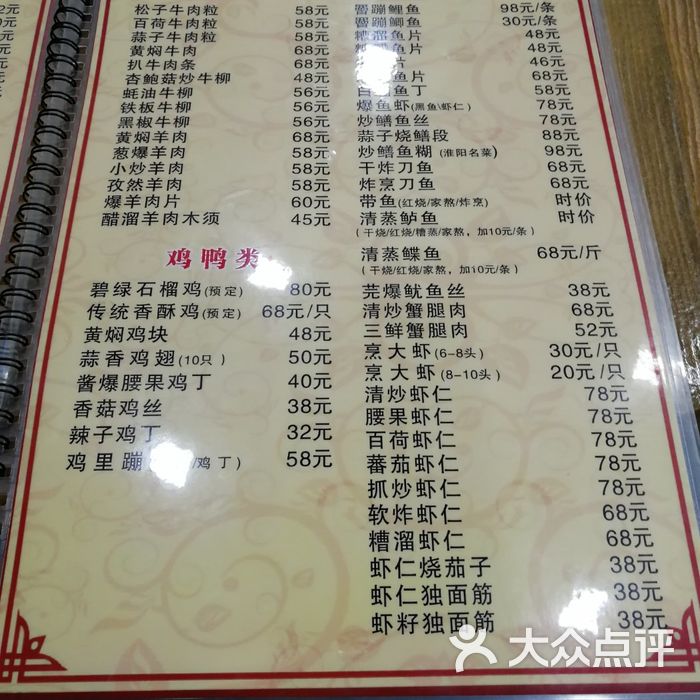 松子牛肉粒 58元
百荷牛肉粒 58元
蒜子牛肉粒 58元
黄焖牛肉 68元
扒牛肉条 68元
杏鲍菇炒牛柳 48元
蚝油牛柳 56元
铁板牛柳 56元
黑椒牛柳 56元
黄焖羊肉 68元
葱爆羊肉 58元
小炒羊肉 58元
孜然羊肉 58元
爆羊肉片 60元
醋溜羊肉木须 45元
鸡鸭类
碧绿石榴鸡(预定) 80元
传统香酥鸡(预定) 68元/只
黄焖鸡块 48元
蒜香鸡翅(10只) 50元
酱爆腰果鸡丁 40元
香菇鸡丝 38元
辣子鸡丁 32元
鸡里蹦 /鸡丁) 58元
罾蹦鲤鱼 98元/条
罾蹦鲫鱼 30元/条
糟溜鱼片 48元
鱼片 48元
片 46元
鱼片 68元
鱼丁 58元
爆鱼虾(黑鱼\虾仁) 78元
炒鳝鱼丝 78元
蒜子烧鳝段 88元
炒鳝鱼糊(淮阳名菜) 98元
干炸刀鱼 68元
炸烹刀鱼 68元
带鱼(红烧/家熬/炸烹) 时价
清蒸鲈鱼 时价
(干烧/红烧/糟蒸/家熬，加10元/条)
清蒸鲽鱼 68元/斤
(干烧/红烧/家熬，加10元/条)
芫爆鱿鱼丝 38元
清炒蟹腿肉 68元
三鲜蟹腿肉 52元
烹大虾(6-8头) 30元/只
烹大虾(8-10头) 20元/只
清炒虾仁 78元
腰果虾仁 78元
百荷虾仁 78元
蕃茄虾仁 78元
抓炒虾仁 78元
软炸虾仁 68元
糟溜虾仁 68元
虾仁烧茄子 38元
虾仁独面筋 38元
虾籽独面筋 38元
大众点评